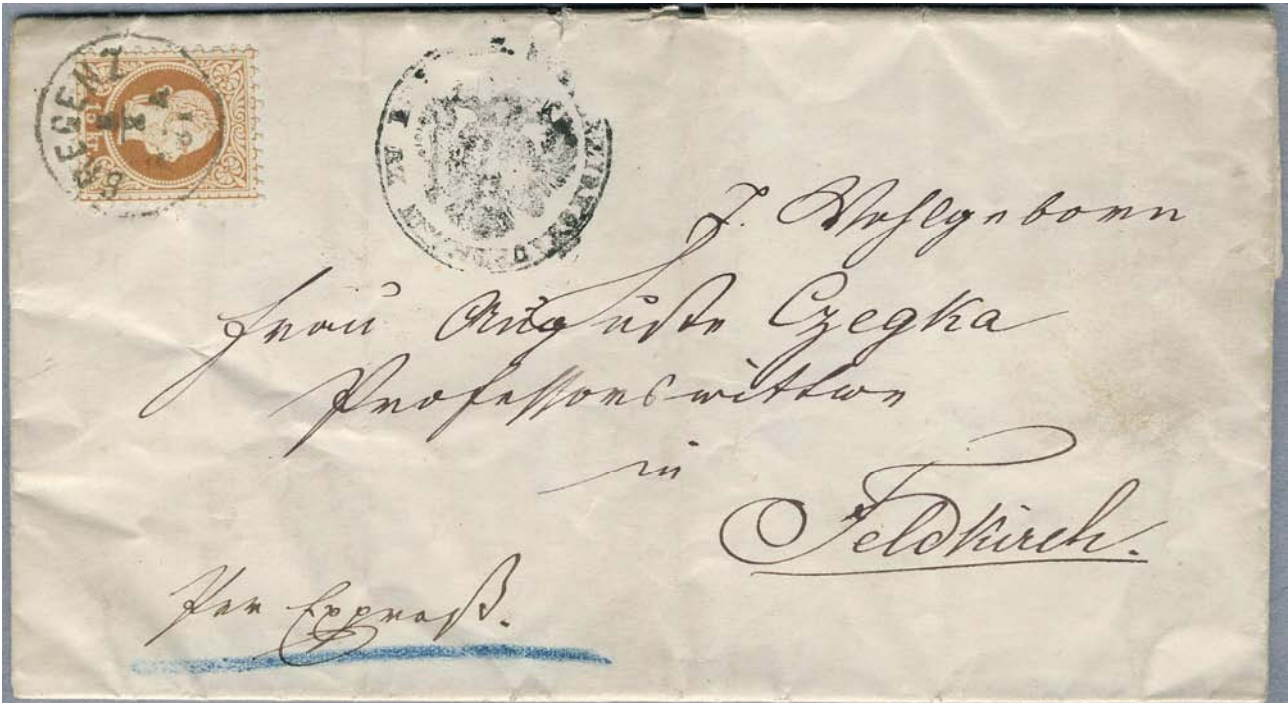 BREGENZ
15 kr
I. Wohlgeborn
Frau Auguste Czegka
Professorswittwe
in
Feldkirch.
Per Expreß.